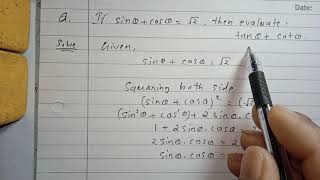 Date:
Q. If sinθ + cosθ = √2, then evaluate.
tanθ + cotθ.
Solve Given,
sinθ + cosθ = √2
Squaring both side
(sinθ + cosθ)² = (√2
(sin²θ + cos²θ) + 2 sinθ.
1 + 2 sinθ. cosθ =
2 sinθ. cosθ = 2
sinθ. cosθ =